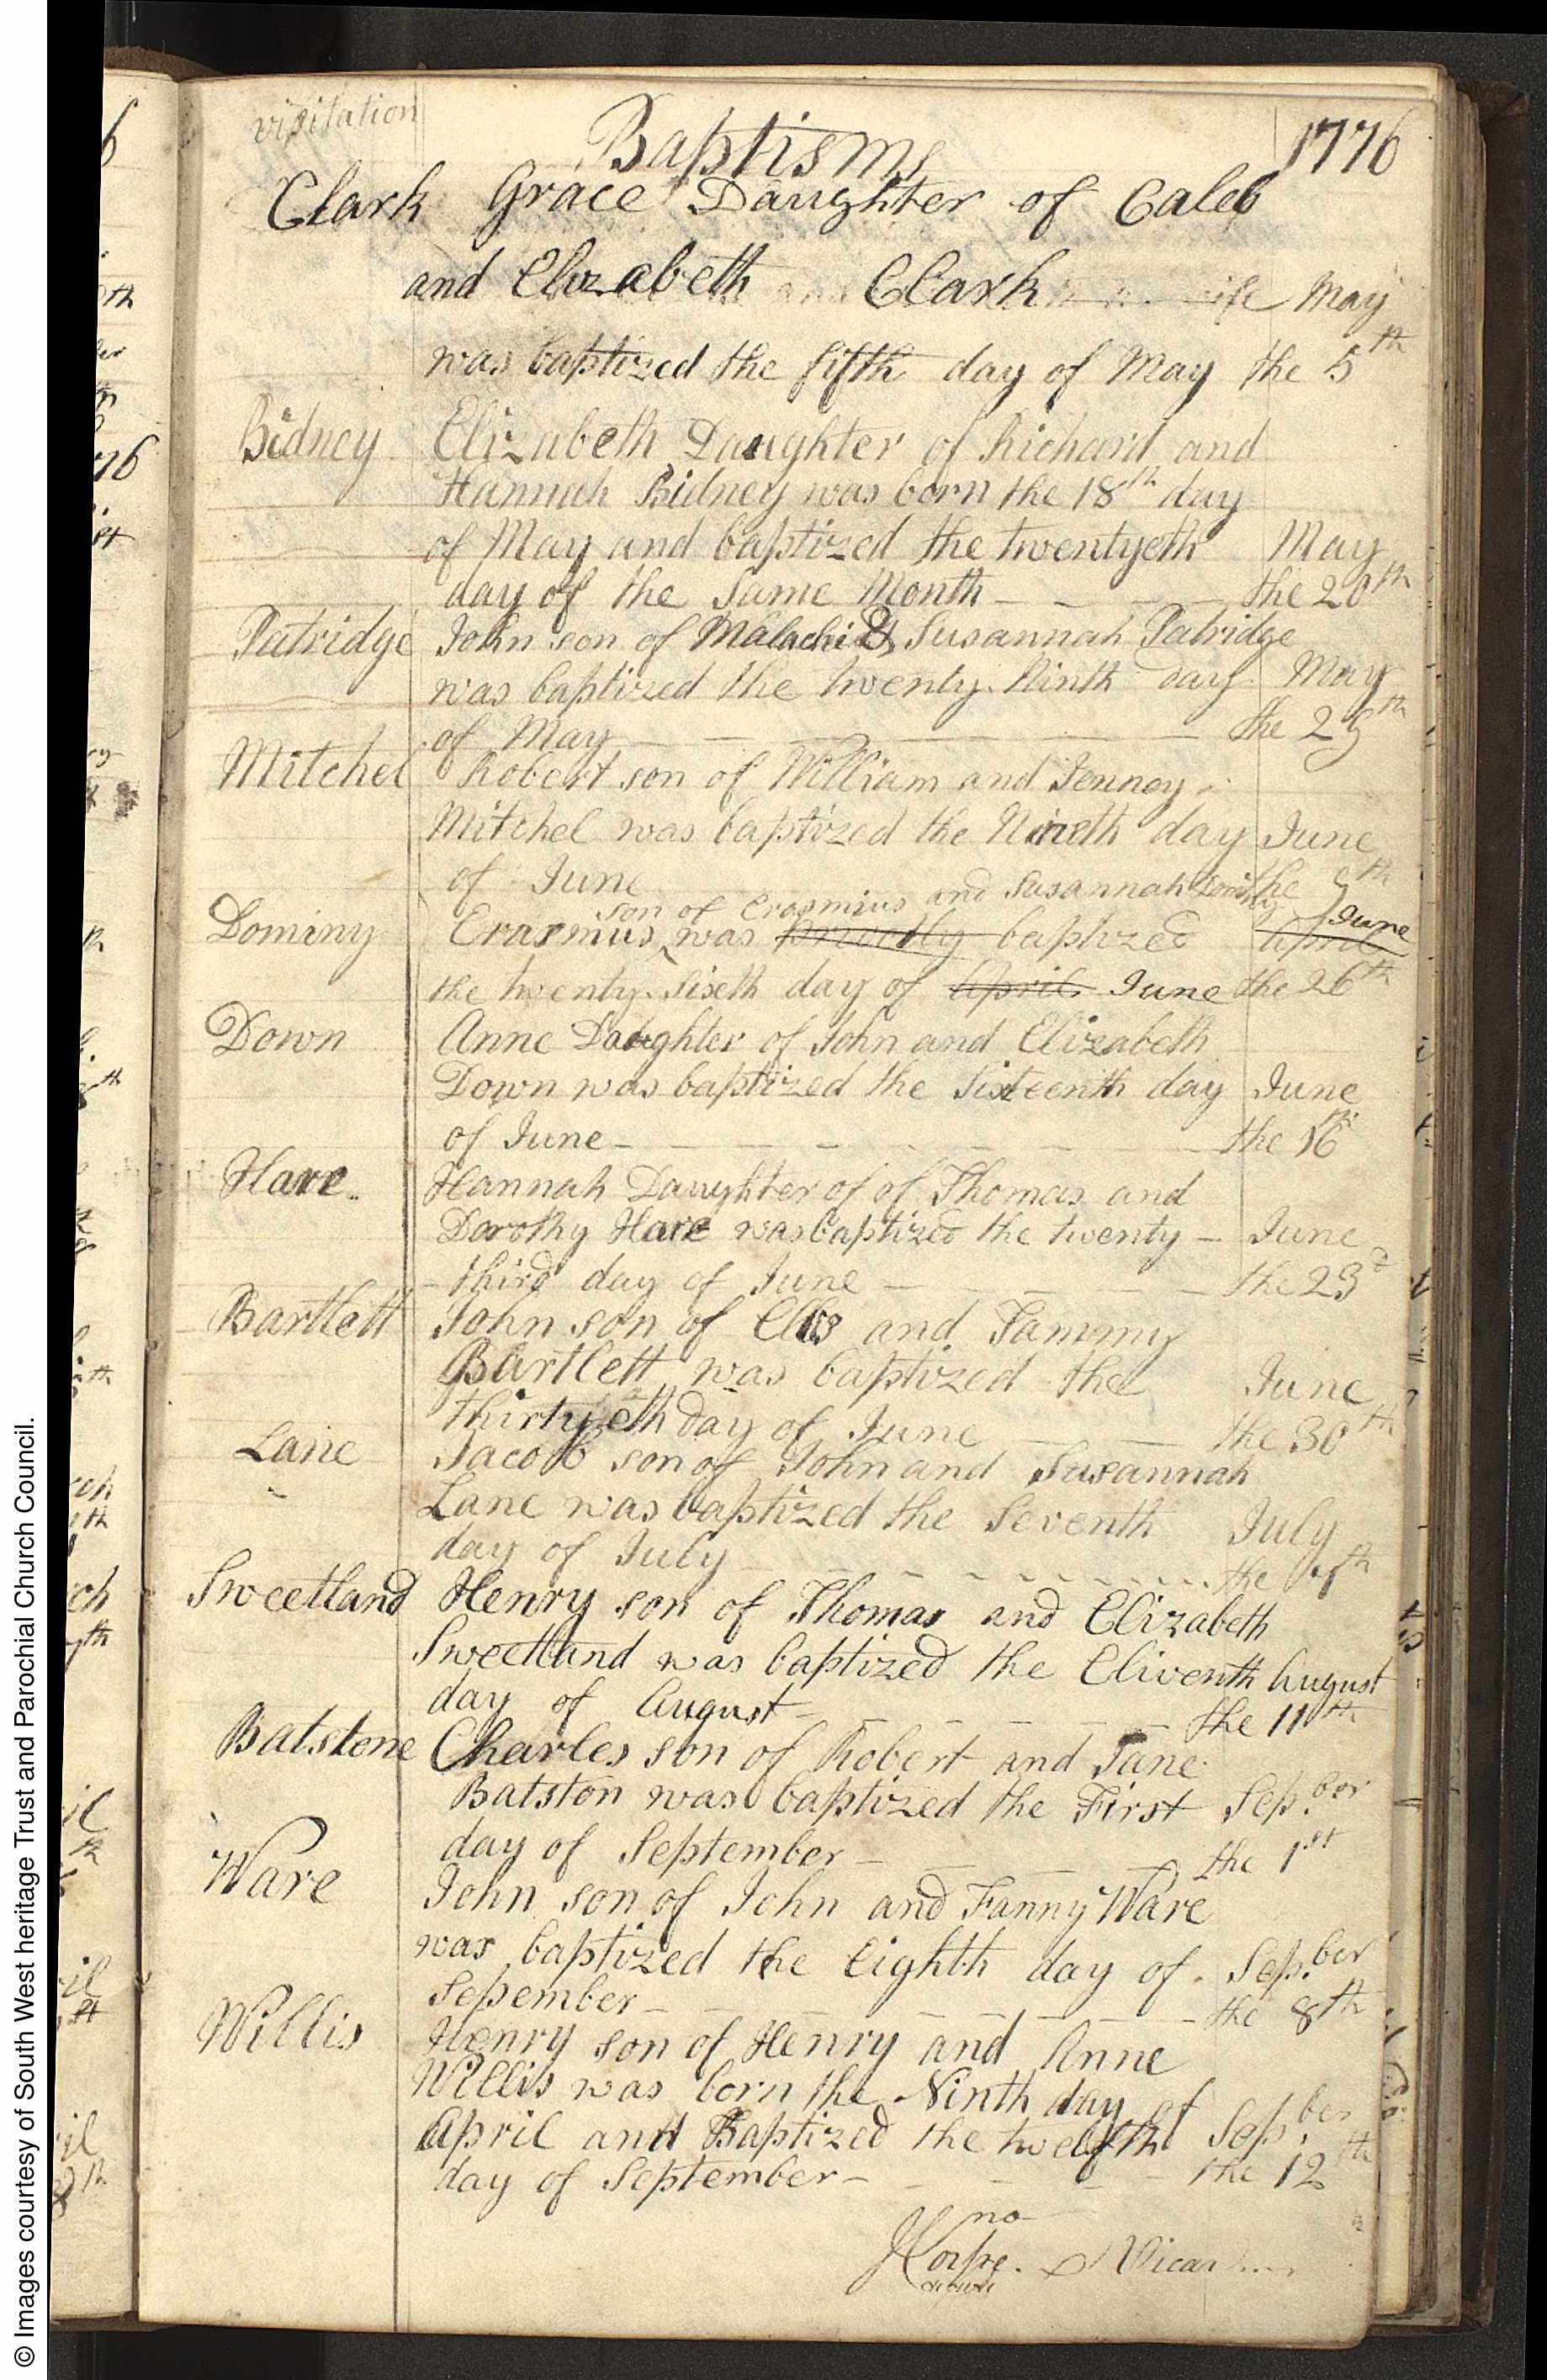 visitation
Baptisms 1776
Clark Grace Daughter of Caleb
and Elizabeth Clark May
was baptized the fifth day of May the 5th
Bidney Elizabeth Daughter of Richard and
Hannah Bidney was born the 18th day
of May and baptized the twentyeth May
day of the Same Month the 20th
Patridge John son of Malachi & Susannah Patridge
was baptized the twenty Ninth day May
of May the 29th
Mitchel Robert son of William and Jenney
Mitchel was baptized the Nineth day June
of June the 9th
son of Erasmius and Susannah Dominy
Dominy Erasmus was privetly baptized April June
the twenty sixth day of April June the 26th
Down Anne Daughter of John and Elizabeth
Down was baptized the Sixteenth day June
of June the 16th
Hare Hannah Daughter of of Thomas and
Dorothy Hare was baptized the twenty June
third day of June the 23d
Bartlett John son of Ellis and Tammy
Bartlett was baptized the June
thirtyeth day of June the 30th
Lane Jacob son of John and Susannah
Lane was baptized the Seventh July
day of July the 7th
Sweetland Henry son of Thomas and Elizabeth
Sweetland was baptized the Eliventh August
day of August the 11th
Batstone Charles son of Robert and Jane
Batston was baptized the First Sep.ber
day of September the 1st
Ware John son of John and Fanny Ware
was baptized the Eighth day of Sep.ber
Sepember the 8th
Willis Henry son of Henry and Anne
Willis was born the Ninth day of
April and Baptized the twelfth Sep.ber
day of September the 12th
Vicar
© Images courtesy of South West heritage Trust and Parochial Church Council.